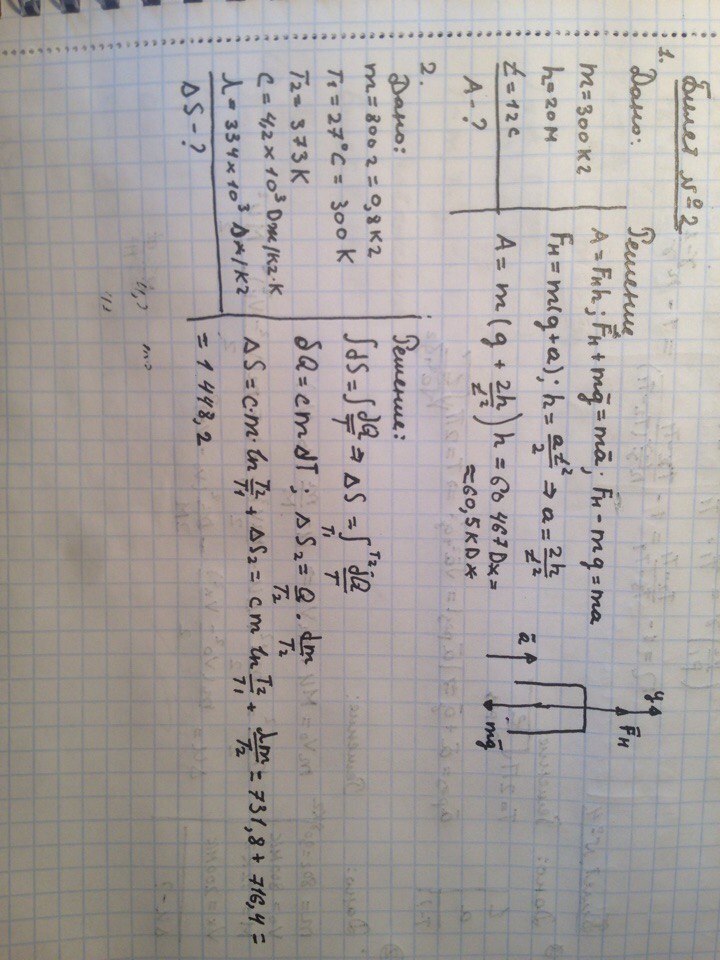 Билет №2
1.
Дано:
m=300кг
h=20м
t=12с
A-?
Решение
A=Fнh; F̄н+mḡ=mā; Fн-mg=ma
Fн=m(g+a); h=at²/2 ⇒ a=2h/t²
A=m(g+2h/t²)h=60 467Дж=
≈60,5кДж
y
F̄н
ā
mḡ
2.
Дано:
m=800г=0,8кг
T₁=27°C=300K
T₂=373K
C=4,2×10³Дж/кг·К
λ=334×10³Дж/кг
ΔS-?
Решение:
∫dS=∫dQ/T ⇒ ΔS=∫T₁T₂ dQ/T
δQ=cmdT; ΔS₂=Q/T₂·λm/T₂
ΔS=c·m·ln T₂/T₁+ΔS₂=cm ln T₂/T₁+λm/T₂=731,8+716,4=
=1448,2